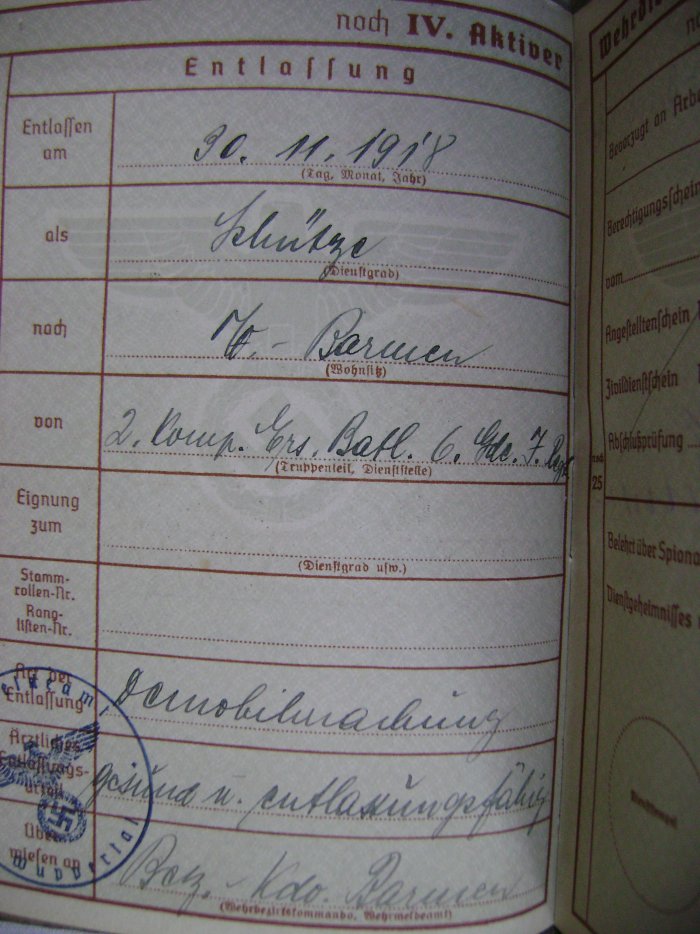 noch IV. Aktiver
Entlassung
Entlassen am
30. 11. 1918
(Tag, Monat, Jahr)
als
Schütze
(Dienstgrad)
nach
W.- Barmen
(Wohnsitz)
von
2. Komp. Ers. Batl. 6. Gde. J. Regt.
(Truppenteil, Dienststelle)
Eignung zum
(Dienstgrad usw.)
Stamm-
rollen-Nr.
Rang-
listen-Nr.
Art der
Entlassung
Demobilmachung
Ärztliches
Entlassungs-
urteil
gesund u. entlassungsfähig
Über-
wiesen an
Bez.- Kdo. Barmen
(Wehrbezirkskommando, Wehrmeldeamt)
Wuppertal
Wehrdie
noc
Bevorzugt an Arbe
Berechtigungsschein
vom
Angestelltenschein
Zivildienstschein
Abschlußprüfung
und
25
Belehrt über Spiona
Dienstgeheimnisses